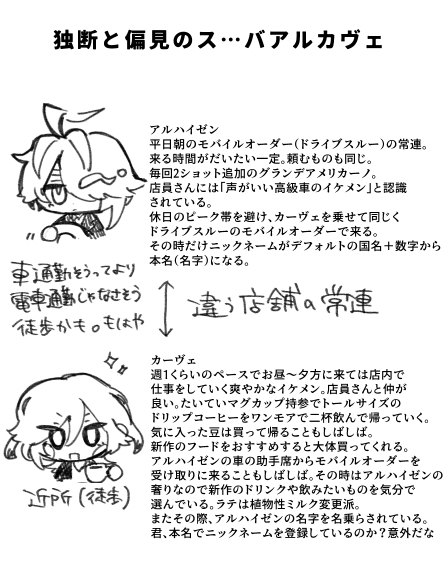 独断と偏見のス…バアルカヴェ
アルハイゼン
平日朝のモバイルオーダー(ドライブスルー)の常連。
来る時間がだいたい一定。頼むものも同じ。
毎回2ショット追加のグランデアメリカーノ。
店員さんには「声がいい高級車のイケメン」と認識
されている。
休日のピーク帯を避け、カーヴェを乗せて同じく
ドライブスルーのモバイルオーダーで来る。
その時だけニックネームがデフォルトの国名+数字から
本名(名字)になる。
車通勤そうってより
電車通勤じゃなさそう
徒歩かも。もはや
違う店舗の常連
カーヴェ
週1くらいのペースでお昼〜夕方に来ては店内で
仕事をしていく爽やかなイケメン。店員さんと仲が
良い。たいていマグカップ持参でトールサイズの
ドリップコーヒーをワンモアで二杯飲んで帰っていく。
気に入った豆は買って帰ることもしばしば。
新作のフードをおすすめすると大体買ってくれる。
アルハイゼンの車の助手席からモバイルオーダーを
受け取りに来ることもしばしば。その時はアルハイゼンの
奢りなので新作のドリンクや飲みたいものを気分で
選んでいる。ラテは植物性ミルク変更派。
またその際、アルハイゼンの名字を名乗らされている。
君、本名でニックネームを登録しているのか?意外だな
近所(徒歩)